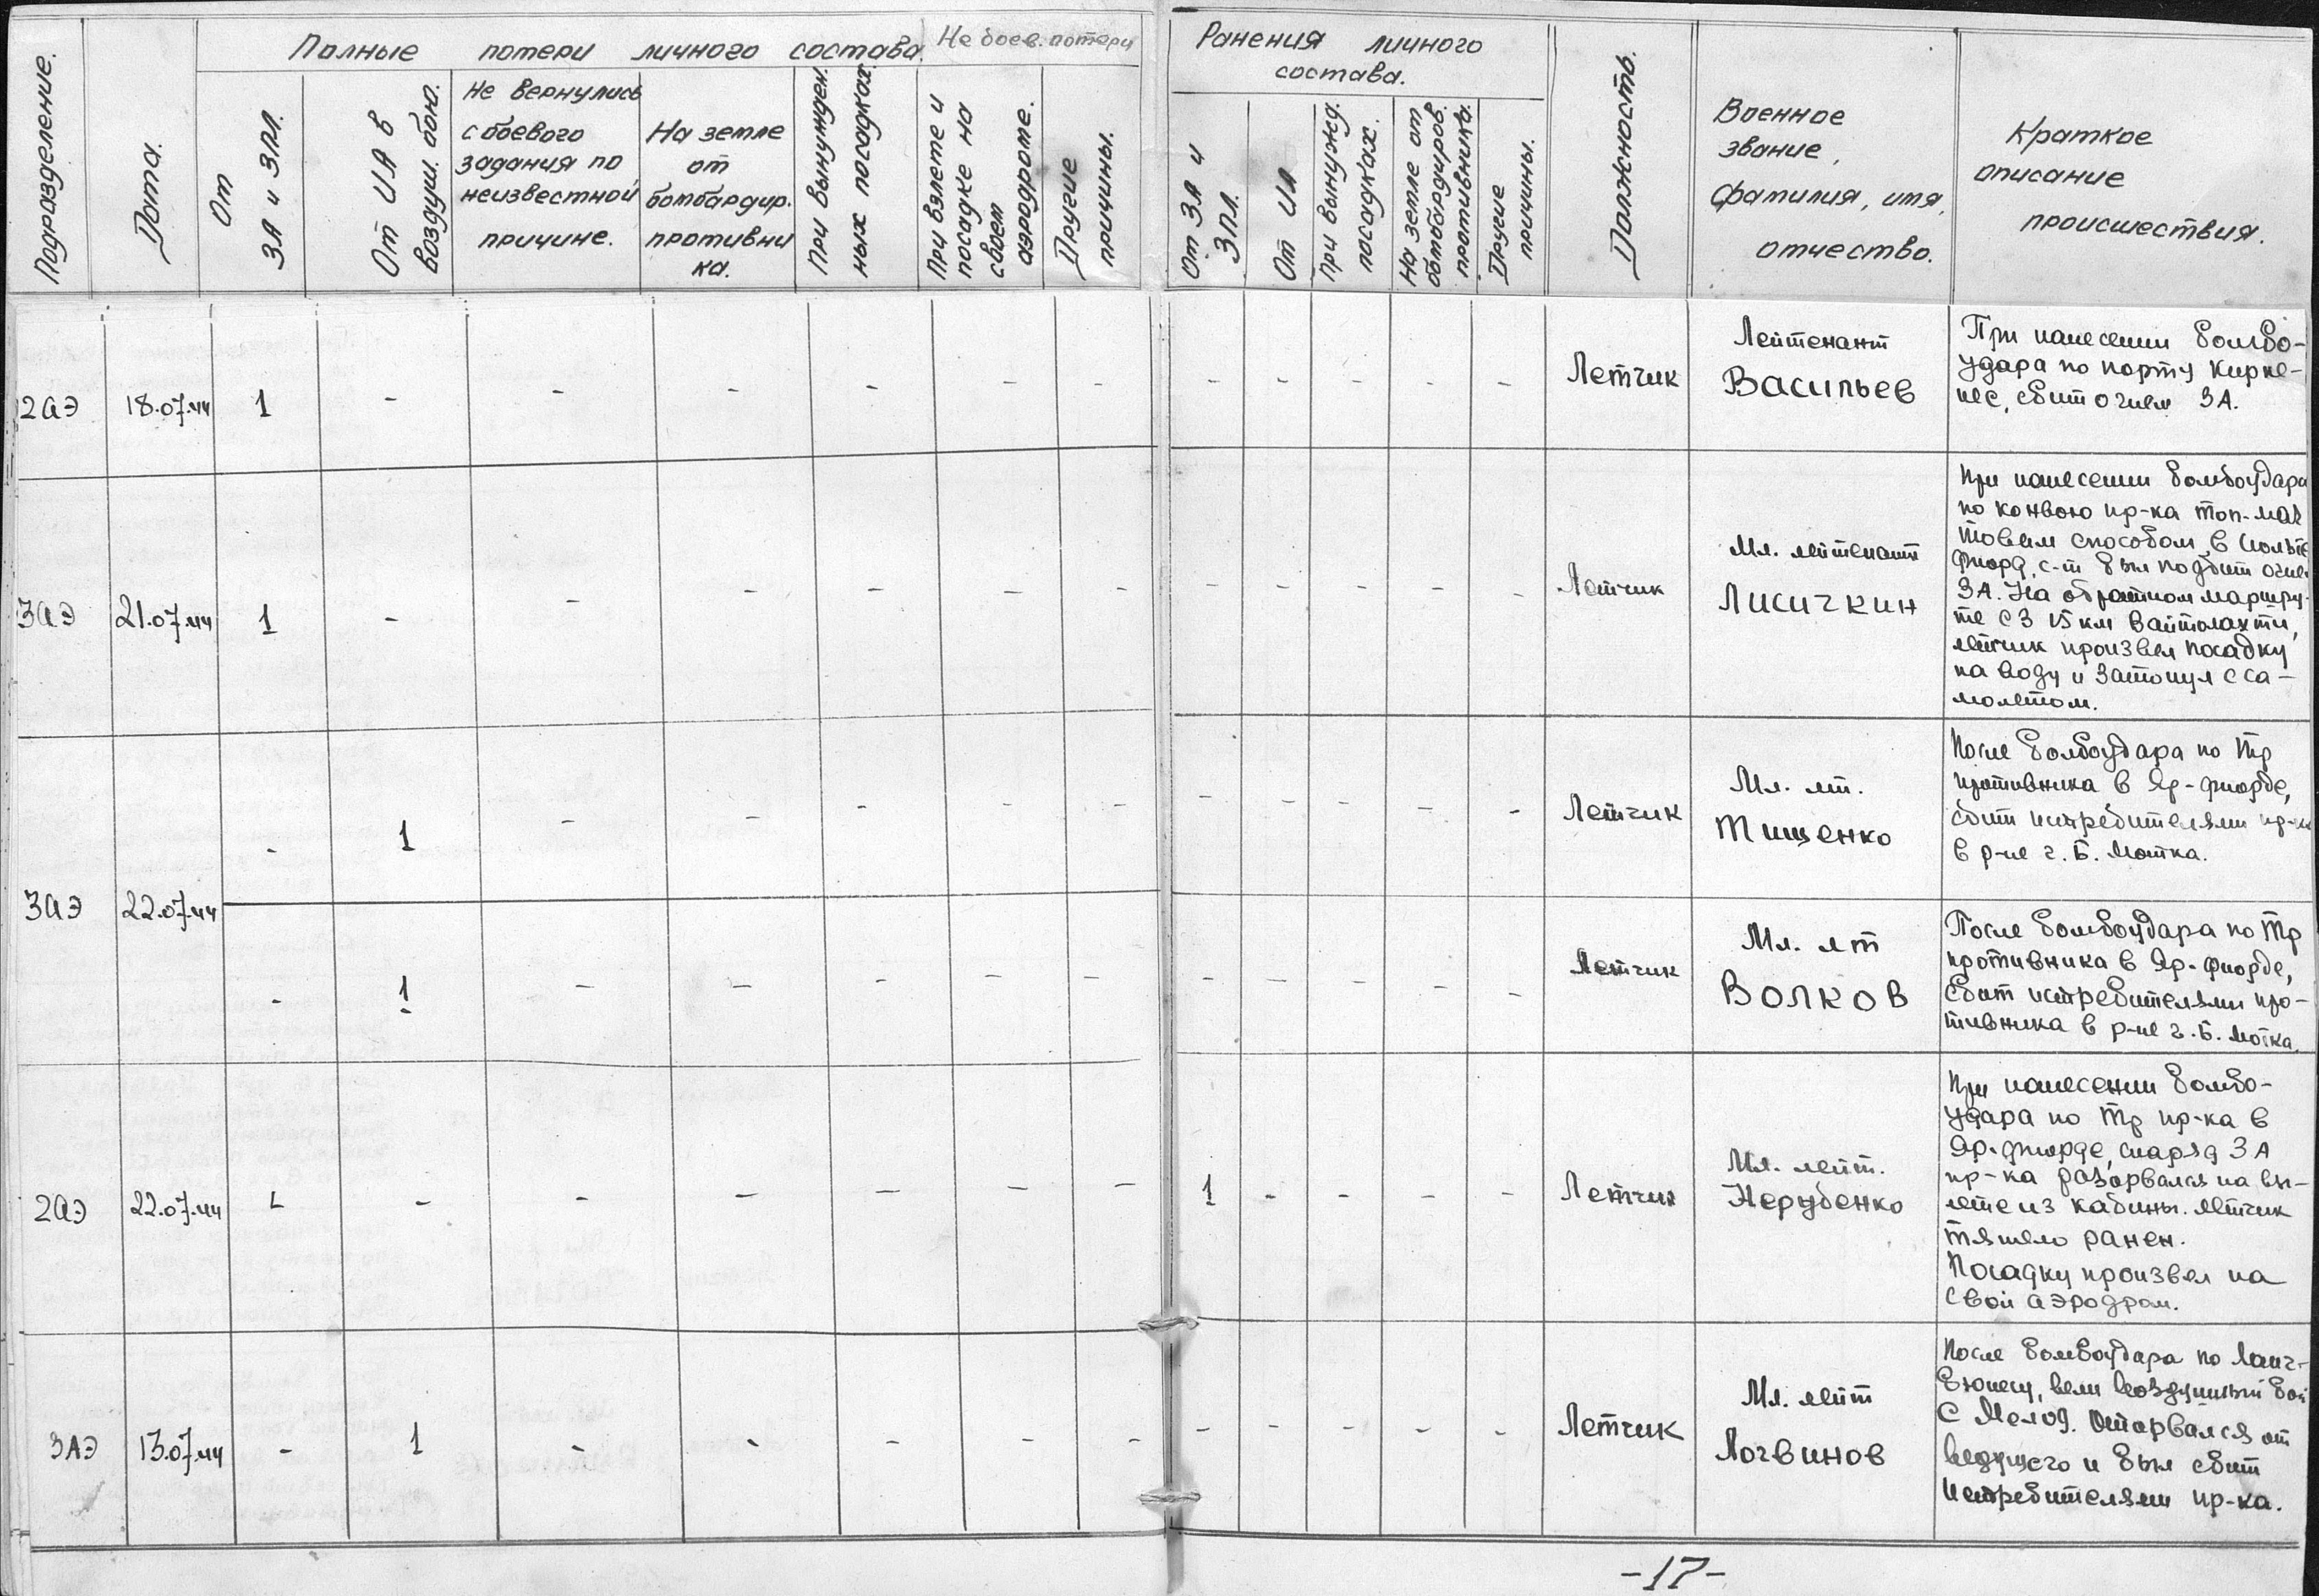 Подразделение.
Дата.
Полные потери личного состава.
Не боев. потери
От
ЗА и ЗПЛ.
От ИА в
воздуш. бою.
Не вернулись
с боевого
задания по
неизвестной
причине.
На земле
от
бомбардир.
противни
ка.
При вынужден.
ных посадках.
При взлете и
посадке на
своем
аэродроме.
Другие
причины.
Ранения личного
состава.
От ЗА и
ЗПЛ.
От ИА
При вынужд.
посадках.
На земле от
бомбардиров.
противника.
Другие
причины.
Должность.
Военное
звание,
фамилия, имя,
отчество.
Краткое
описание
происшествия.
2АЭ 18.07.44 1 - - - - - - - - - - - Летчик
Лейтенант
Васильев
При нанесении бомбо-
удара по порту Кирке-
нес, сбит огнем ЗА.
3АЭ 21.07.44 1 - - - - - - - - - - - Летчик
Мл. лейтенант
Лисичкин
При нанесении бомбоудара
по конвою пр-ка топ-мач
товым способом, в
фиорд, с-т был подбит огнем
ЗА. На обратном маршру-
те СЗ 15 км Вайтолахти,
летчик произвел посадку
на воду и затонул с са-
молетом.
3АЭ 22.07.44
- 1 - - - - - - - - - - Летчик
Мл. лт.
Тищенко
После бомбоудара по Тр
противника в Яр-фиорде,
сбит истребителями пр-ка
в р-не г. Б. Мотка.
- 1 - - - - - - - - - - Летчик
Мл. лт
Волков
После бомбоудара по Тр
противника в Яр-фиорде,
сбит истребителями про-
тивника в р-не г. Б. Мотка.
2АЭ 22.07.44 - - - - - - 1 - - - - Летчик
Мл. лейт.
Нерубенко
При нанесении бомбо-
удара по Тр пр-ка в
Яр-фиорде, снаряд ЗА
пр-ка разорвался на вы-
лете из кабины. Летчик
тяжело ранен.
Посадку произвел на
свой аэродром.
3АЭ 13.07.44 - 1 - - - - - - - - - - Летчик
Мл. лейт
Логвинов
После бомбоудара по Ланг-
бюнесу, вели воздушный бой
с Ме109. Оторвался от
ведущего и был сбит
истребителями пр-ка.
-17-